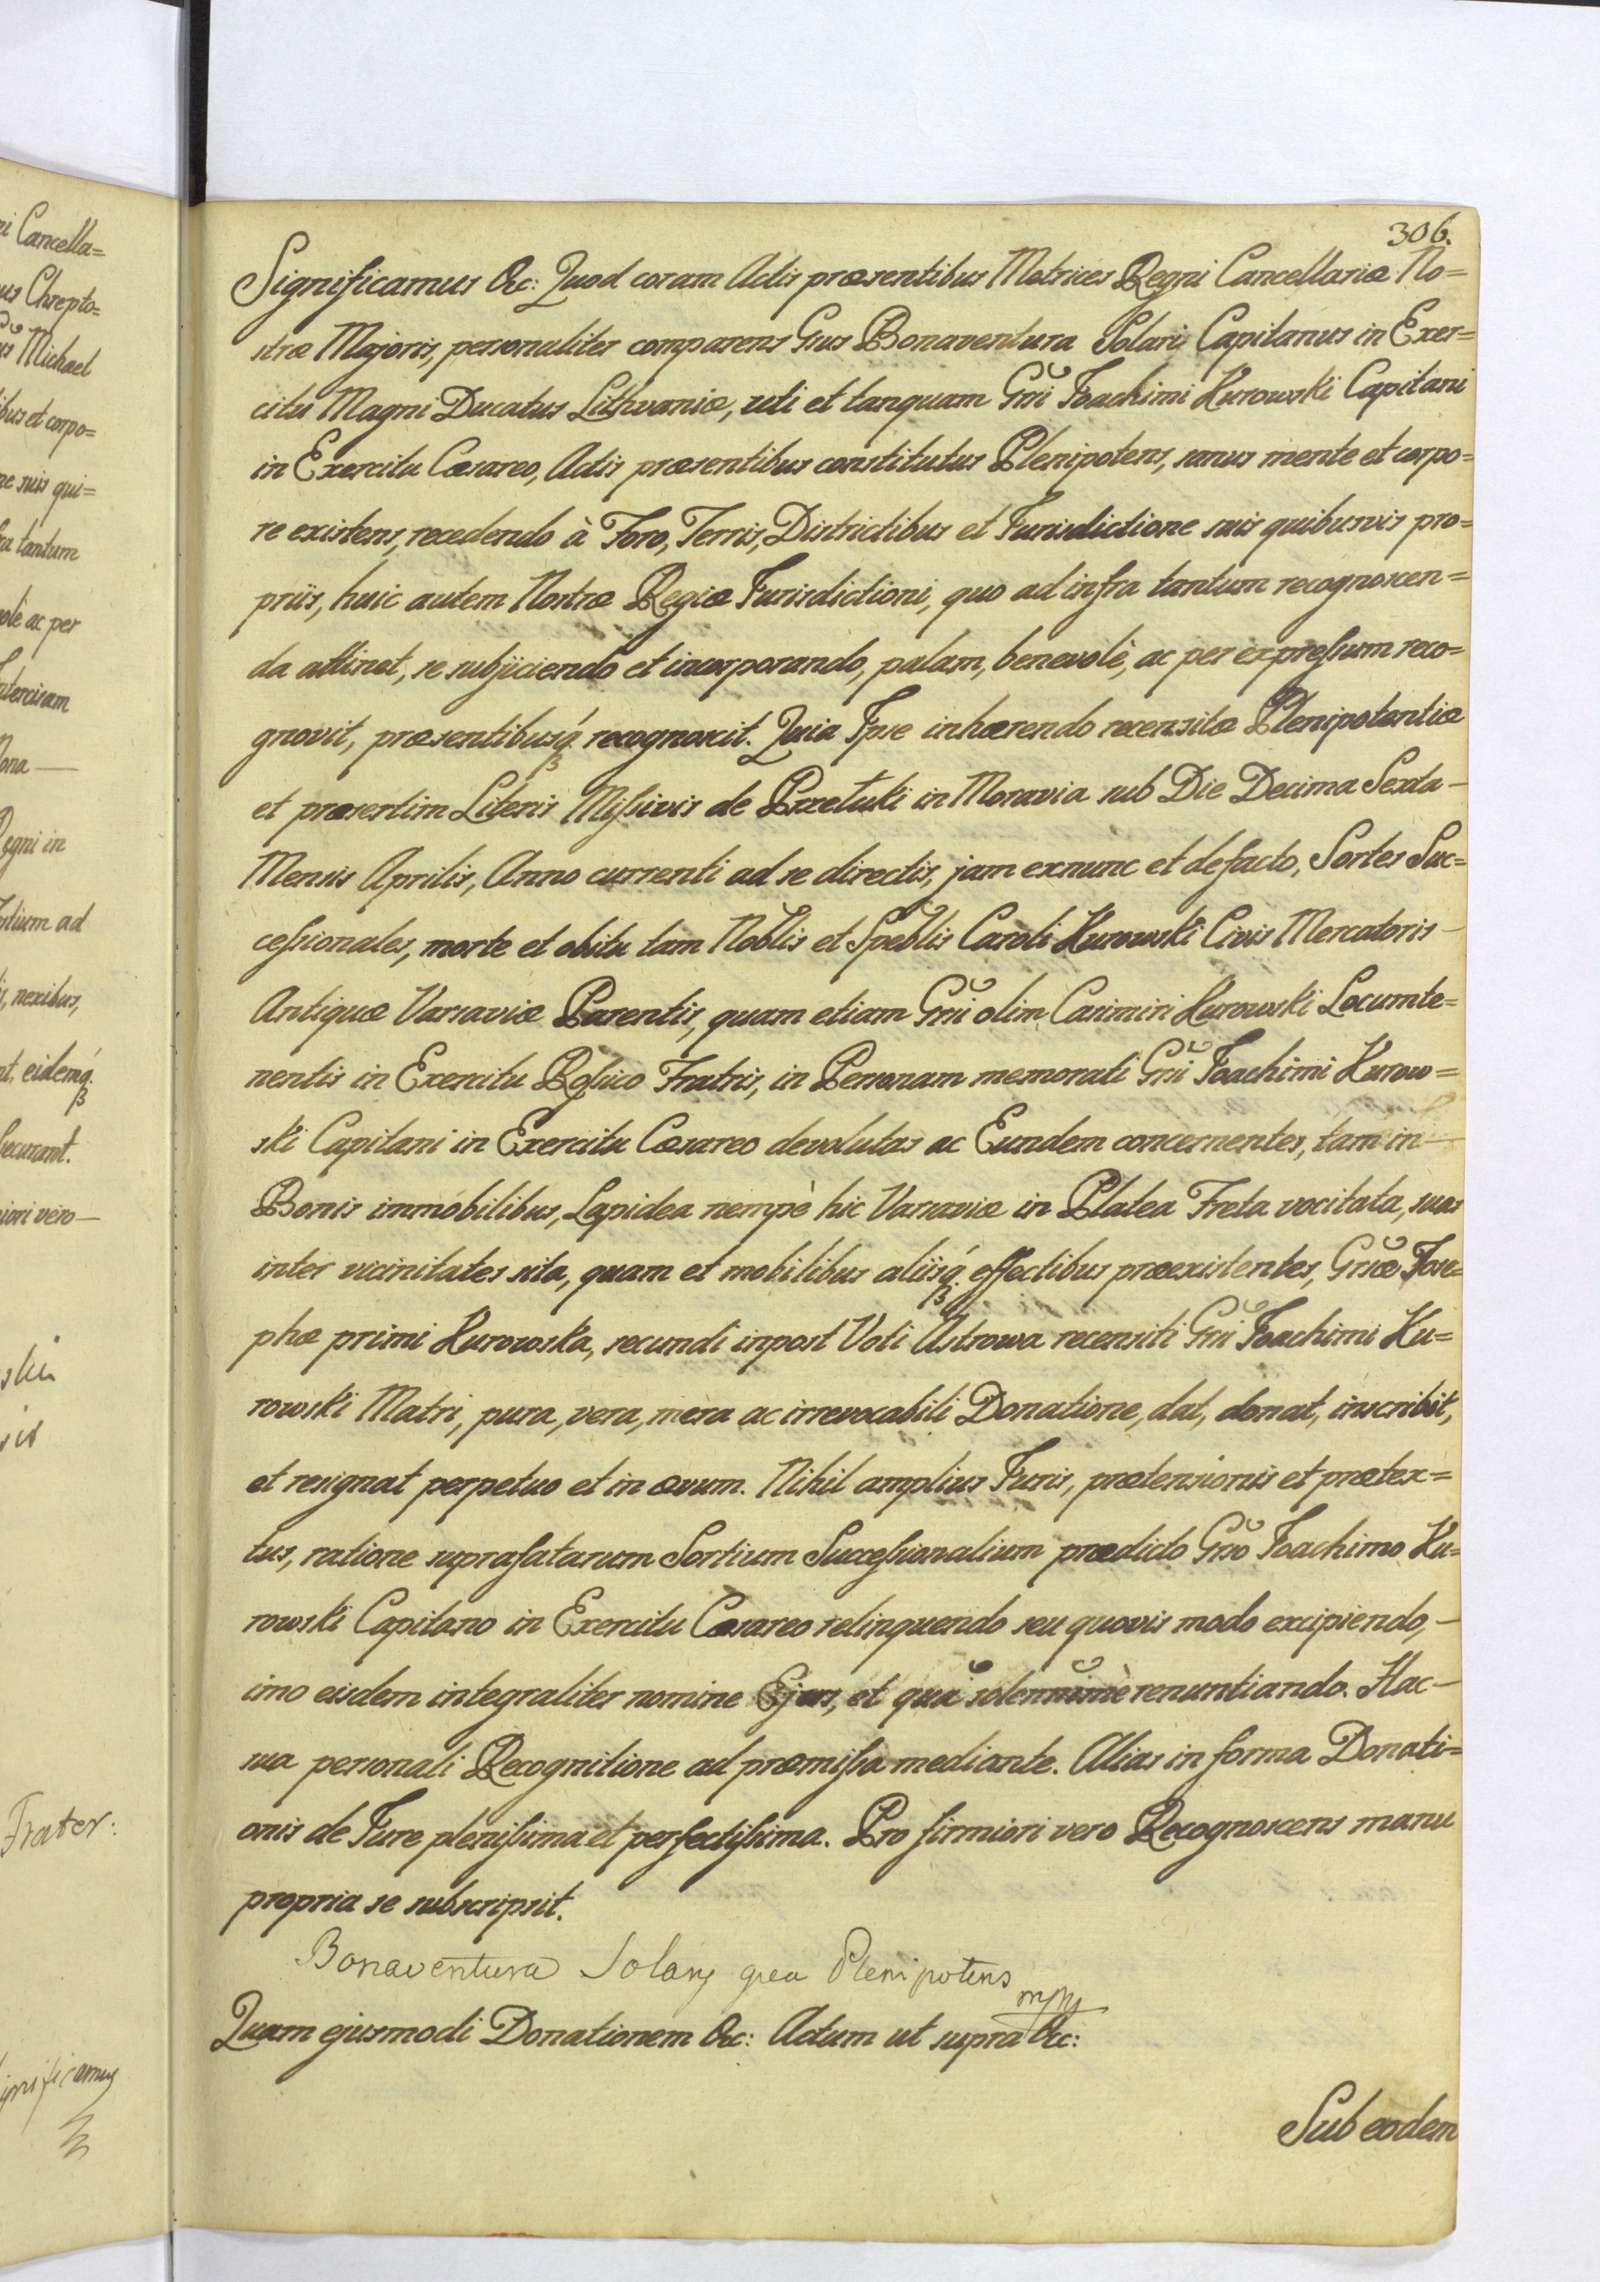 ri Cancella=
us Chrepto=
us Michael
ibus et corpo=
ne suis qui=
fra tantum
volè ac per
Intercisam
Nona —
Regni in
ad
is, nexibus,
nt, eidemq3.
securant.
iori vero —
Frater:
ignificamus
306.
Significamus &c: Quod coram Actis præsentibus Metrices Regni Cancellariæ No=
stræ Majoris, personaliter comparens Gnus Bonaventura Solari Capitanus in Exer=
citu Magni Ducatus Lithvaniæ, uti et tanquam Gni Joachimi Kurowski Capitani
in Exercitu Cæsareo, Actis præsentibus constitutus Plenipotens, sanus mente et corpo=
re existens, recedendo à Foro, Terris, Districtibus et Jurisdictione suis quibusvis pro=
priis, huic autem Nostræ Regiæ Jurisdictioni, quo ad infra tantum recognoscen=
da attinet, se subjiciendo et incorporando, palam, benevolè, ac per expressum reco=
gnovit, præsentibusq3 recognoscit. Quia Ipse inhærendo recensitæ Plenipotentiæ
et præsertim Literis Missivis de Przetuki in Moravia sub Die Decima Sexta —
Mensis Aprilis, Anno currenti ad se directis, jam exnunc et defacto, Sortes Suc=
cessionales, morte et obitu tam Noblis et Speblis Caroli Kurowski Civis Mercatoris —
Antiquæ Varsaviæ Parentis, quam etiam Gni olim Casimiri Kurowski Locumte=
nentis in Exercitu Prussico Fratris, in Personam memorati Gni Joachimi Kurow=
ski Capitani in Exercitu Cæsareo devolutas ac Eundem concernentes, tam in —
Bonis immobilibus, Lapidea nempè hic Varsaviæ in Platea Freta vocitata, suas
inter vicinitates sita, quam et mobilibus aliisq3 effectibus præexistentes, Gnsæ Jose=
phæ primi Kurowska, secundi inpost Voti Astrowa recensiti Gni Joachimi Ku=
rowski Matri, pura, vera, mera ac irrevocabili Donatione, dat, donat, inscribit,
et resignat perpetuo et in ævum. Nihil amplius Juris, prætensionis et prætex=
tus, ratione suprafatarum Sortium Successionalium prædicto Gno Joachimo Ku=
rowski Capitano in Exercitu Cæsareo relinquendo seu quovis modo excipiendo, —
imo eisdem integraliter nomine Ejus, et qua solennimè renuntiando. Hac —
sua personali Recognitione ad præmissa mediante. Alias in forma Donati=
onis de Jure plenissima et perfectissima. Pro firmiori vero Recognoscens manu
propria se subscripsit.
Bonaventura Solary qua Plenipotens
mpp
Quam ejusmodi Donationem &c: Actum ut supra &c:
Sub eodem